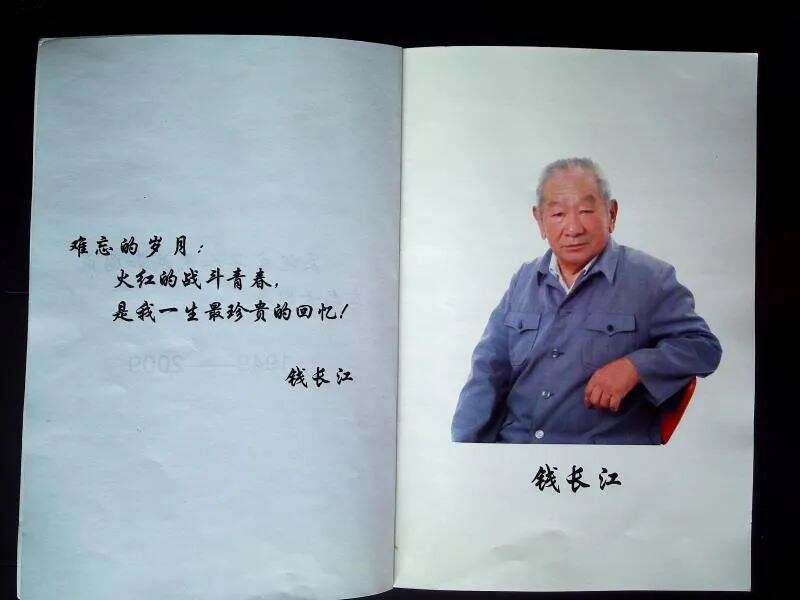 难忘的岁月：
火红的战斗青春，
是我一生最珍贵的回忆！
钱长江
钱长江